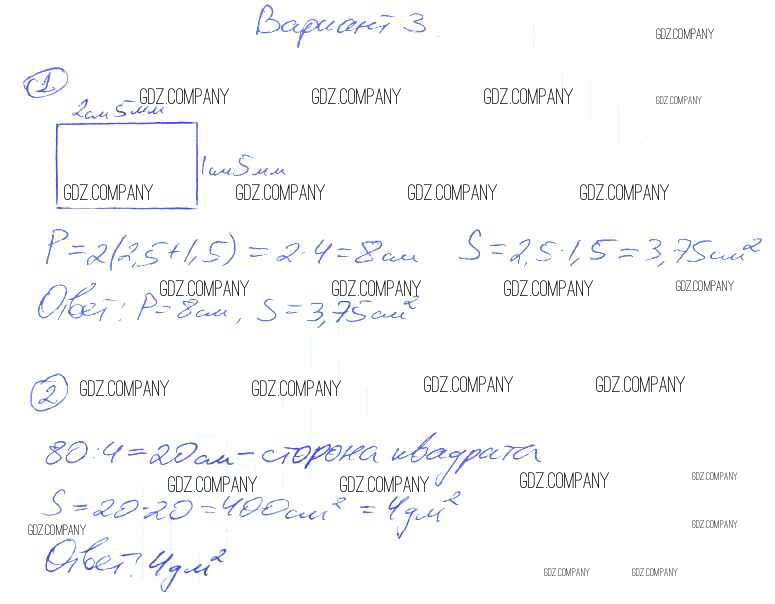 Вариант 3
GDZ.COMPANY
1.
GDZ.COMPANY GDZ.COMPANY GDZ.COMPANY GDZ.COMPANY
2см 5мм
1см 5мм
GDZ.COMPANY GDZ.COMPANY GDZ.COMPANY GDZ.COMPANY
P=2(2,5+1,5)=2·4=8см S=2,5·1,5=3,75см²
GDZ.COMPANY GDZ.COMPANY GDZ.COMPANY GDZ.COMPANY
Ответ: P=8см, S=3,75см²
2 GDZ.COMPANY GDZ.COMPANY GDZ.COMPANY GDZ.COMPANY
80:4=20см - сторона квадрата
GDZ.COMPANY GDZ.COMPANY GDZ.COMPANY GDZ.COMPANY
S=20·20=400см²=4дм²
GDZ.COMPANY GDZ.COMPANY
Ответ: 4дм²
GDZ.COMPANY GDZ.COMPANY